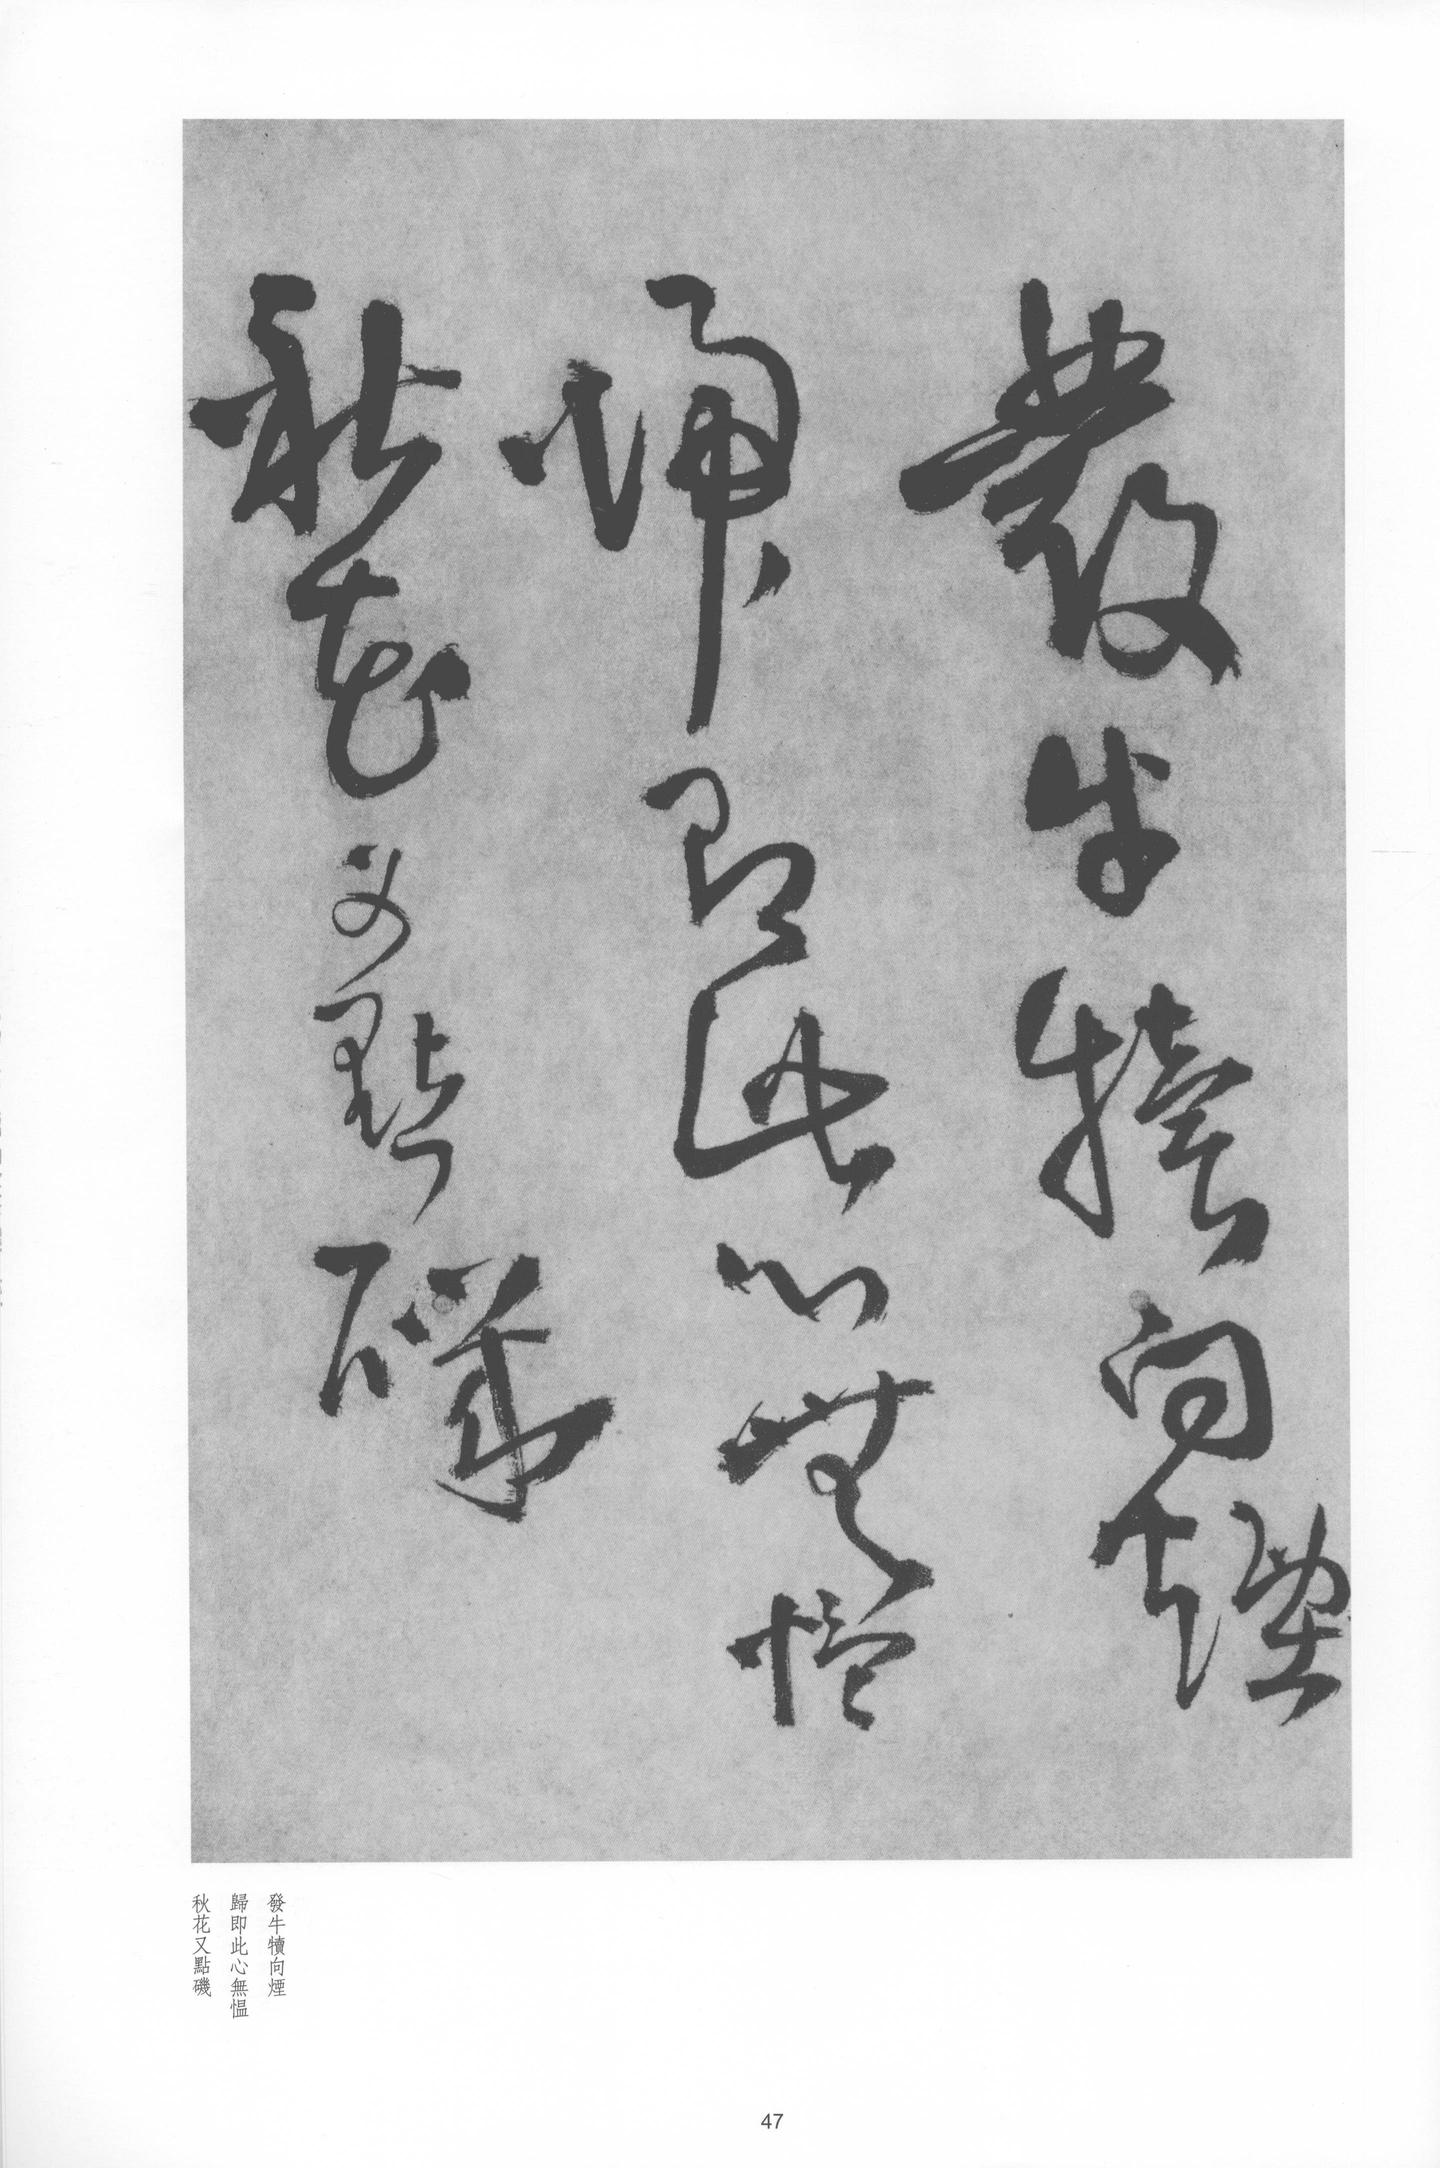 發牛犢向煙
歸即此心無愠
秋花又點磯
發牛犢向煙
歸即此心無愠
秋花又點磯
47